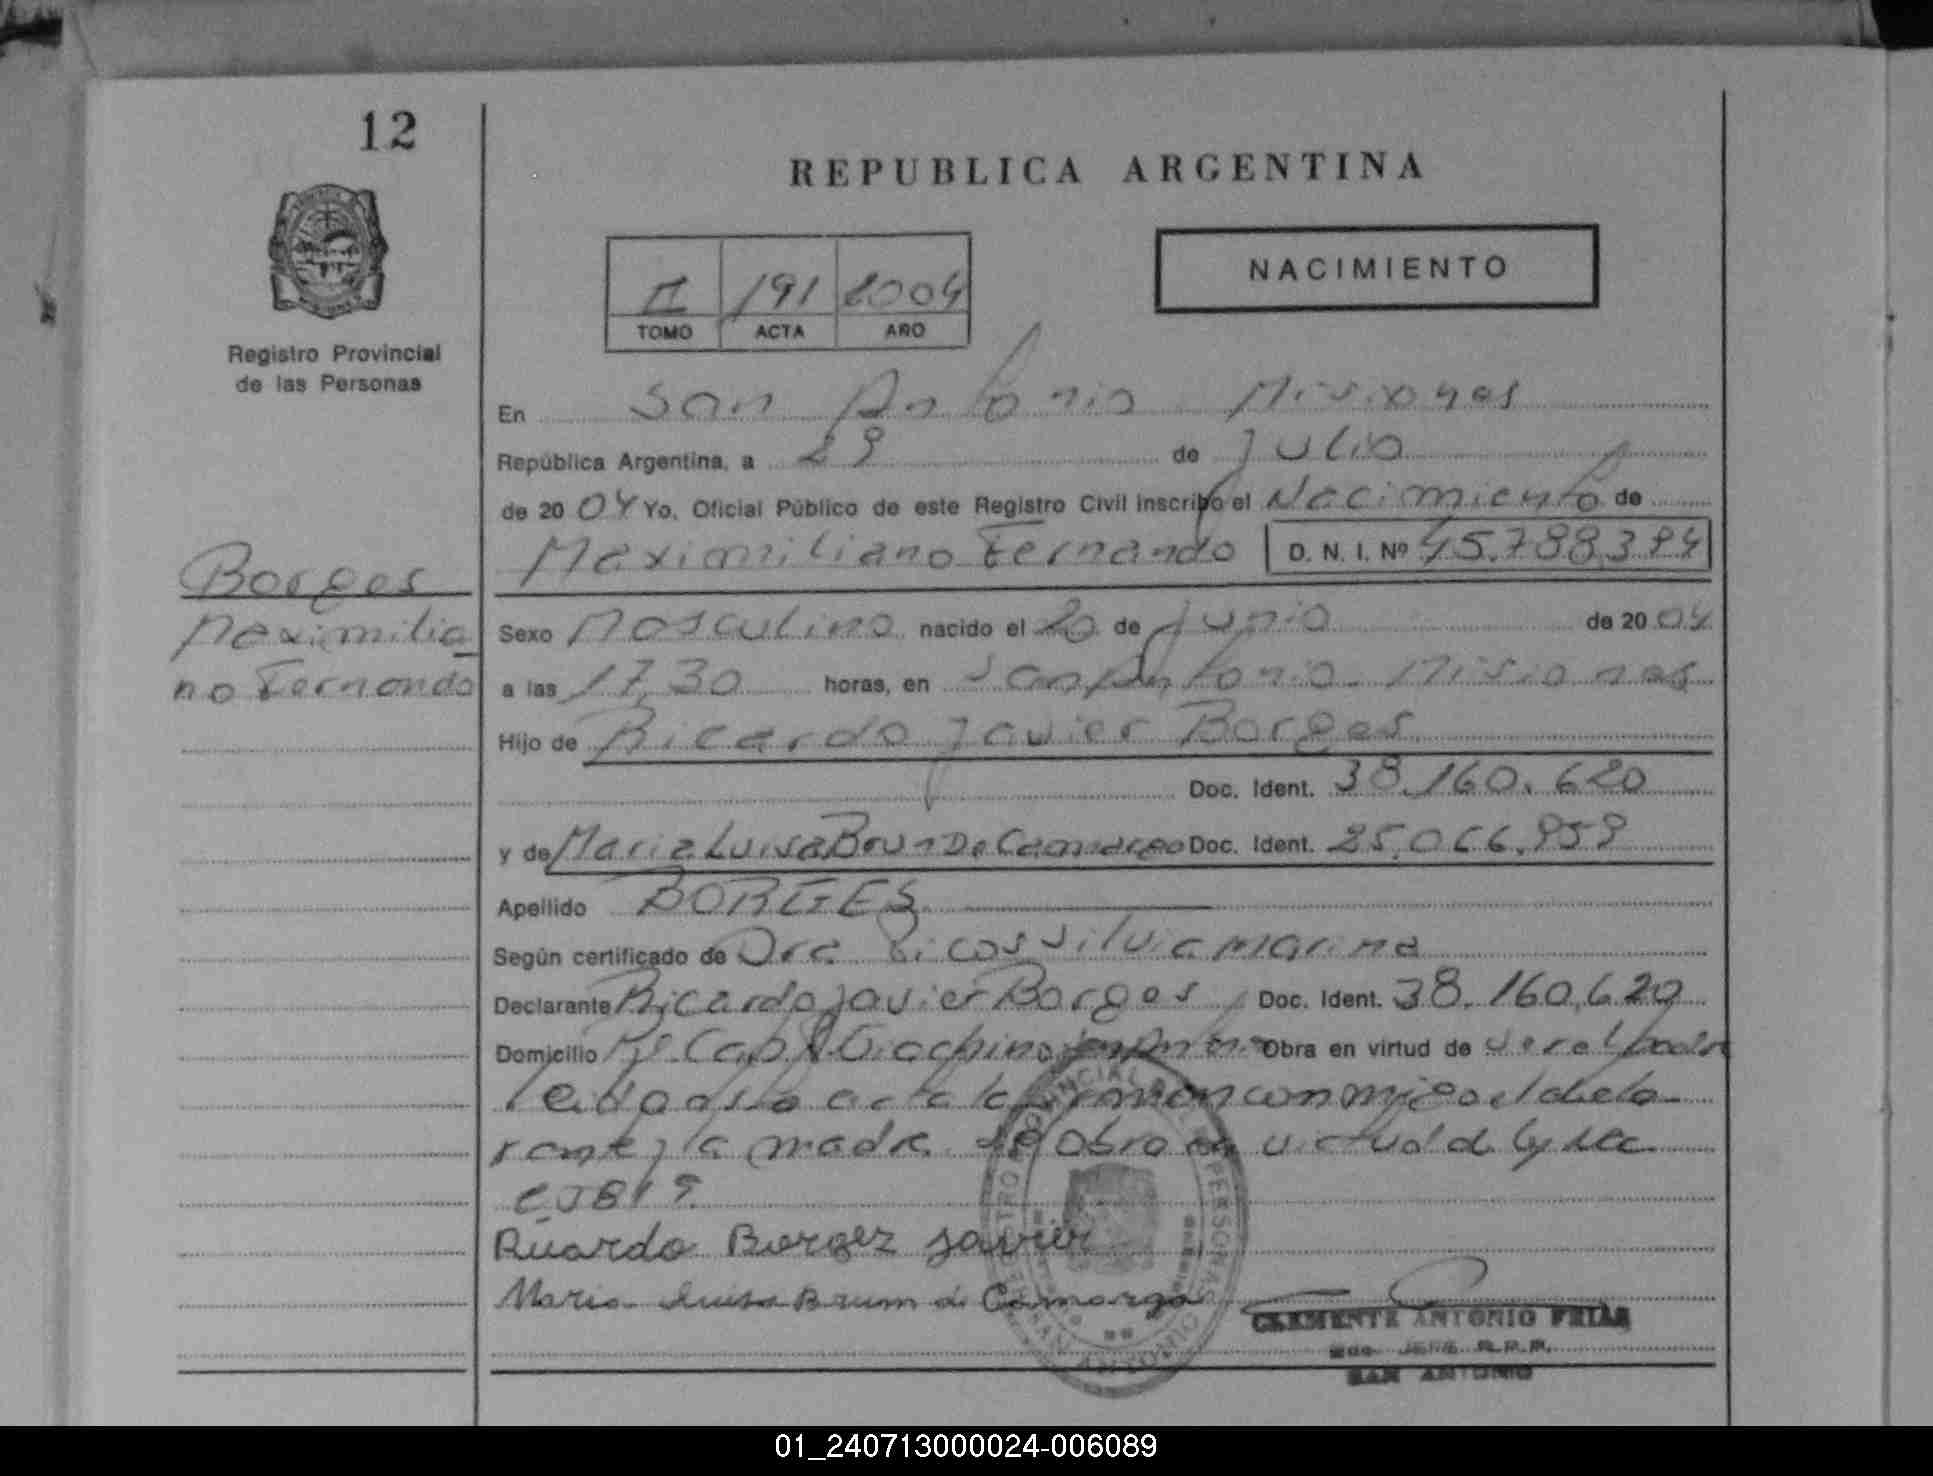 12
REPUBLICA ARGENTINA
NACIMIENTO
II 191 2004
TOMO ACTA AÑO
Registro Provincial
de las Personas
En San Antonio Misiones
República Argentina, a 29 de Julio
de 20 04 Yo, Oficial Público de este Registro Civil inscribo el Nacimiento de
Maximiliano Fernando D. N. I. Nº 45.788.394
Borges
Maximilia
no Fernando
Sexo Masculino nacido el 20 de Junio de 20 04
a las 17,30 horas, en San Antonio - Misiones
Hijo de Ricardo Javier Borges
Doc. Ident. 38.160.620
y de Maria Luisa Brun De Camargo Doc. Ident. 25.066.959
Apellido BORGES
Según certificado de Dra. Silvia Marina
Declarante Ricardo Javier Borges Doc. Ident. 38.160.620
Domicilio Obra en virtud de ser el padre
Leida esta acta la firman conmigo el decla
rante y la madre obra en virtud de
Ricardo Borgez Javier
Maria luisa Brum de Camargo
REGISTRO PROVINCIAL DE LAS PERSONAS
SAN ANTONIO
CLEMENTE ANTONIO FRIAS
JEFE R.P.P.
SAN ANTONIO
01_240713000024-006089